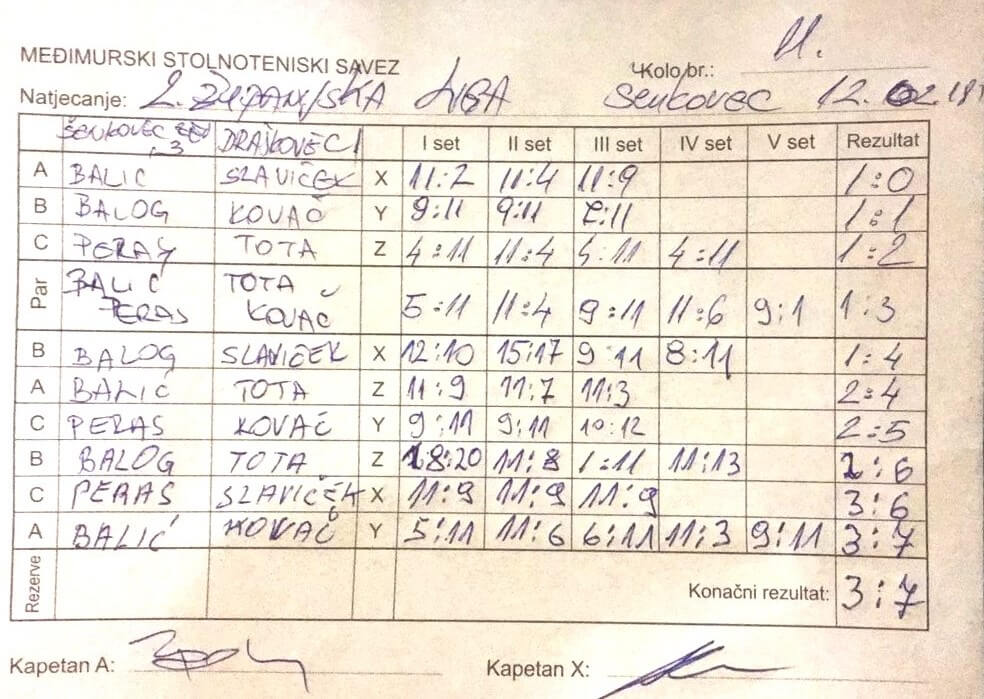 11.
MEĐIMURSKI STOLNOTENISKI SAVEZ Kolo br.:
Natjecanje: 2. ŽUPANIJSKA LIGA Senkovec 12.02.18
ŠENKOVEC 3 DRAŠKOVECI I set II set III set IV set V set Rezultat
A BALIĆ SZAVIČEK X 11:2 11:4 11:9 1:0
B BALOG KOVAČ Y 9:11 9:11 7:11 1:1
C PERAS TOTA Z 4:11 11:4 5:11 4:11 1:2
Par BALIĆ TOTA
PERAS KOVAČ 5:11 11:4 9:11 11:6 9:1 1:3
B BALOG SLAVIČEK X 12:10 15:17 9:11 8:11 1:4
A BALIĆ TOTA Z 11:9 11:7 11:3 2:4
C PERAS KOVAČ Y 9:11 9:11 10:12 2:5
B BALOG TOTA Z 18:20 11:8 1:11 11:13 2:6
C PERAS SZAVIČEK X 11:9 11:9 11:9 3:6
A BALIĆ KOVAČ Y 5:11 11:6 6:11 11:3 9:11 3:7
Rezerve Konačni rezultat: 3:7
Kapetan A: Kapetan X: